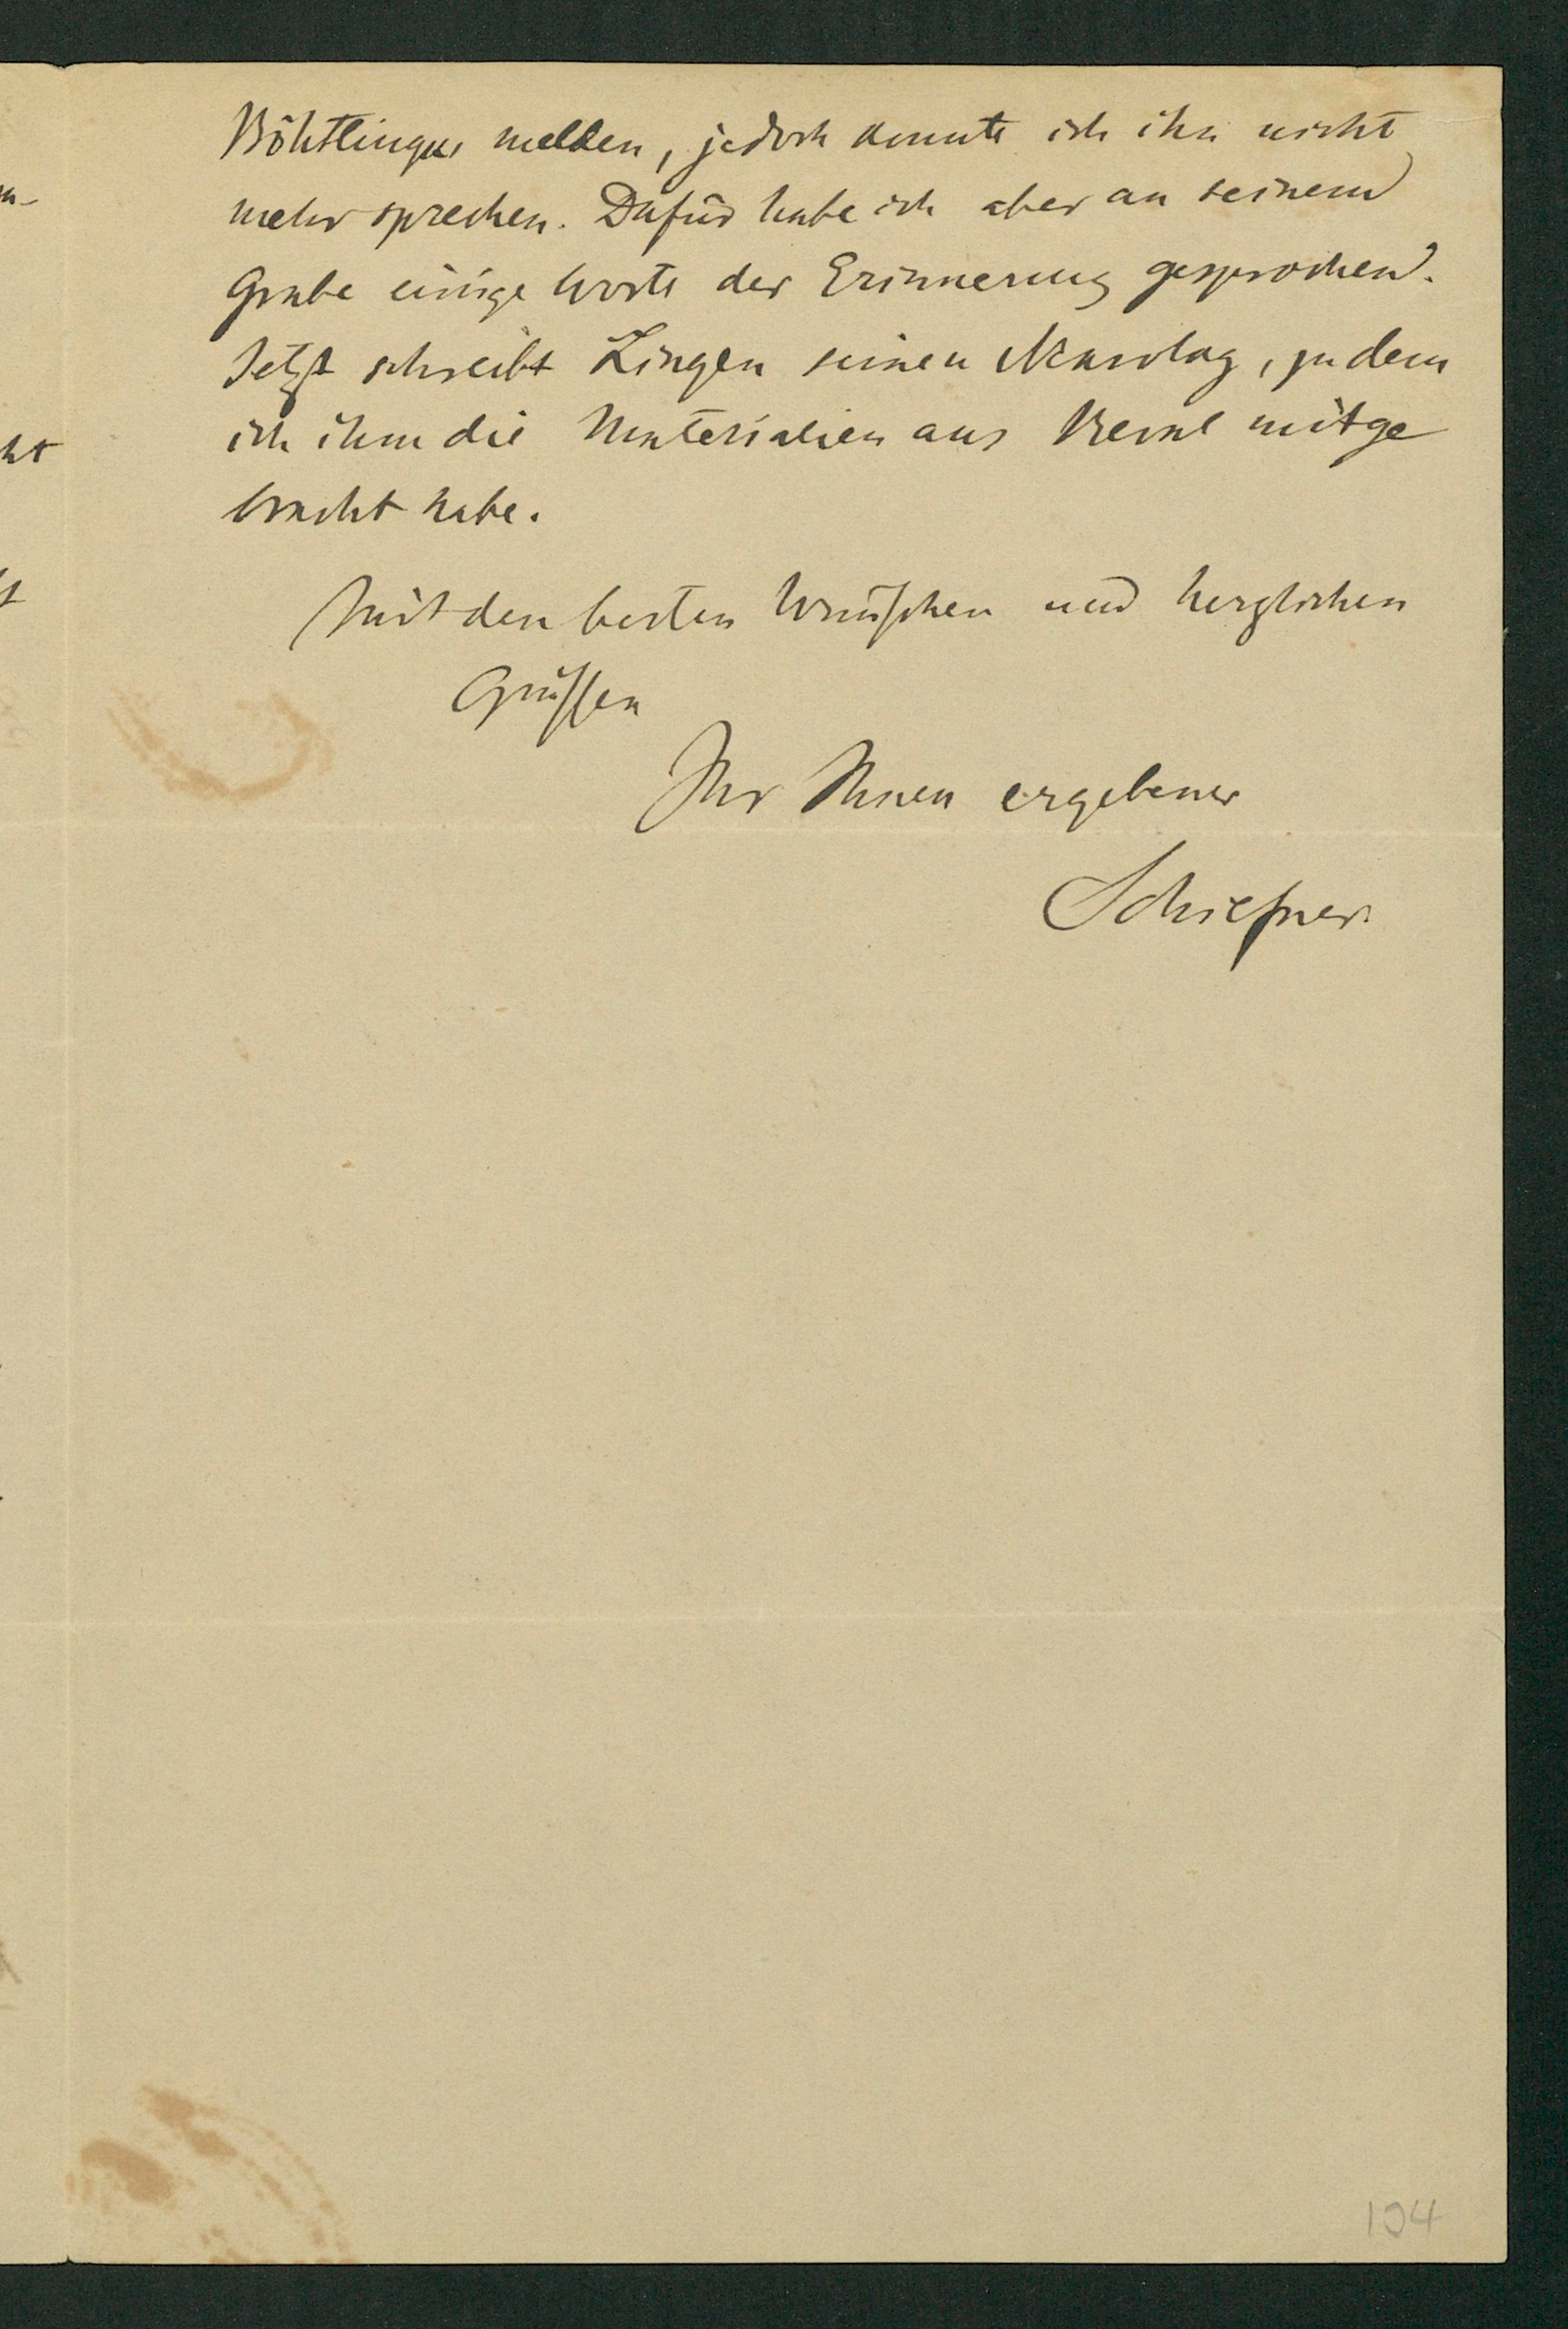 Böhtlingks melden, jedoch konnte ich ihn nicht
mehr sprechen. Dafür habe ich aber an seinem
Grabe einige Worte der Erinnerung gesprochen.
Jetzt schreibt Lingen seinen Nekrolog, zu dem
ich ihm die Materialien aus Reval mitge
bracht habe.
Mit den besten Wünschen und herzlichen
Grüssen
Ihr Ihnen ergebener
Schiefner.
194